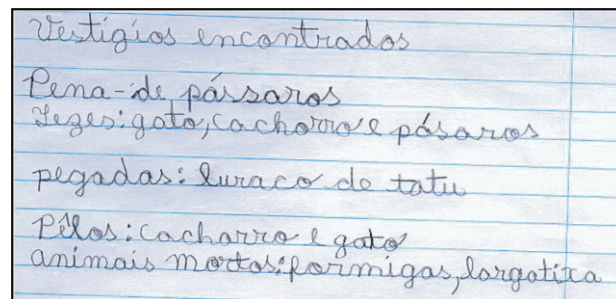 Vestígios encontrados
Pena-de pássaros
Fezes: gato, cachorro e pásaros
pegadas: buraco do tatu
Pêlos: cacharro e gato
animais mortos: formigas, largatixa